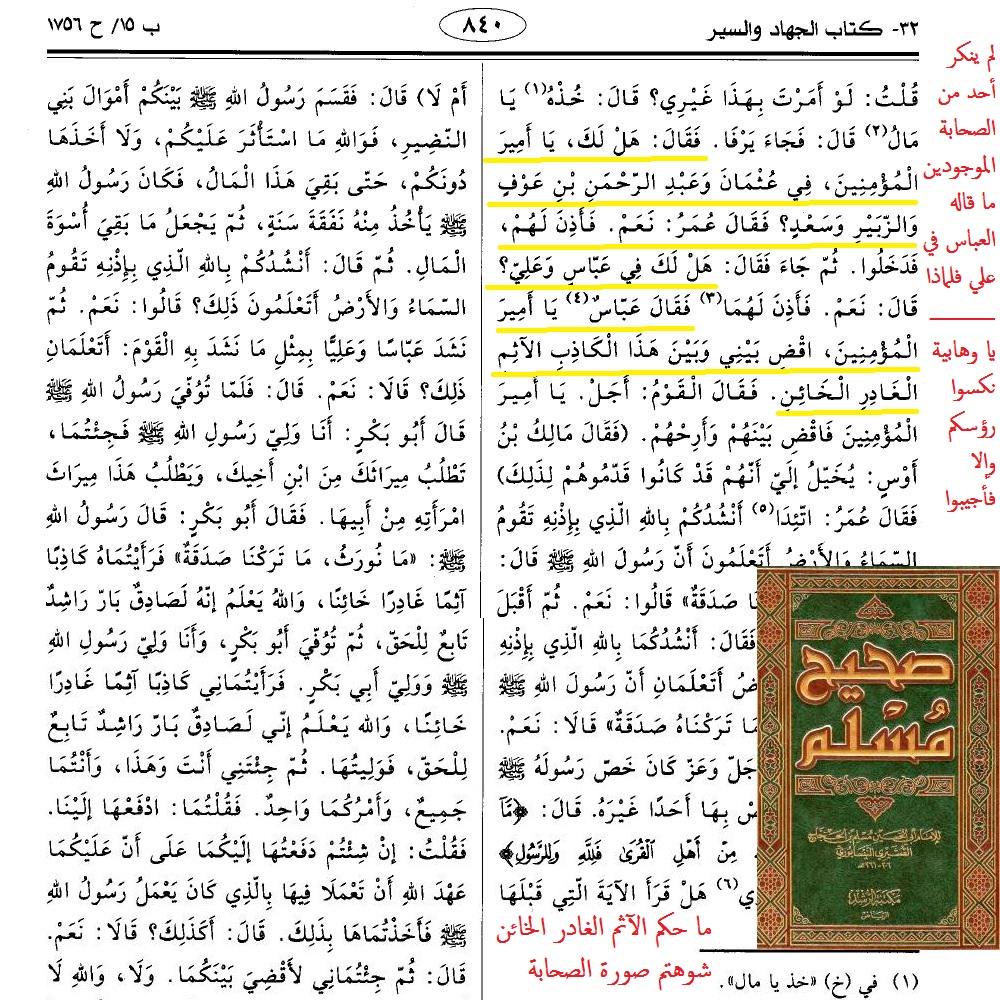 ٣٢- كتاب الجهاد والسير
٨٤٠
ب ١٥/ ح ١٧٥٦
قُلْتُ: لَوْ أَمَرْتَ بِهَذَا غَيْرِي؟ قَالَ: خُذْهُ(١) يَا
مَالُ(٢) قَالَ: فَجَاءَ يَرْفَا. فَقَالَ: هَلْ لَكَ، يَا أَمِيرَ
الْمُؤْمِنِينَ، فِي عُثْمَانَ وَعَبْدِ الرَّحْمَنِ بْنِ عَوْفٍ
وَالزُّبَيْرِ وَسَعْدٍ؟ فَقَالَ عُمَرُ: نَعَمْ. فَأَذِنَ لَهُمْ،
فَدَخَلُوا. ثُمَّ جَاءَ فَقَالَ: هَلْ لَكَ فِي عَبَّاسٍ وَعَلِيٍّ؟
قَالَ: نَعَمْ. فَأَذِنَ لَهُمَا(٣) فَقَالَ عَبَّاسٌ(٤) يَا أَمِيرَ
الْمُؤْمِنِينَ، اقْضِ بَيْنِي وَبَيْنَ هَذَا الْكَاذِبِ الآثِمِ
الْغَادِرِ الْخَائِنِ. فَقَالَ الْقَوْمُ: أَجَلْ. يَا أَمِيرَ
الْمُؤْمِنِينَ فَاقْضِ بَيْنَهُمْ وَأَرِحْهُمْ. (فَقَالَ مَالِكُ بْنُ
أَوْسٍ: يُخَيَّلُ إِلَيَّ أَنَّهُمْ قَدْ كَانُوا قَدَّمُوهُمْ لِذَلِكَ)
فَقَالَ عُمَرُ: اتَّئِدَا(٥) أَنْشُدُكُمْ بِاللهِ الَّذِي بِإِذْنِهِ تَقُومُ
السَّمَاءُ وَالأَرْضُ أَتَعْلَمُونَ أَنَّ رَسُولَ اللهِ ﷺ قَالَ:
صَدَقَةٌ» قَالُوا: نَعَمْ. ثُمَّ أَقْبَلَ
فَقَالَ: أَنْشُدُكُمَا بِاللهِ الَّذِي بِإِذْنِهِ
أَتَعْلَمَانِ أَنَّ رَسُولَ اللهِ ﷺ
تَرَكْنَاهُ صَدَقَةٌ» قَالَا: نَعَمْ.
جَلَّ وَعَزَّ كَانَ خَصَّ رَسُولَهُ ﷺ
بِهَا أَحَدًا غَيْرَهُ. قَالَ: ﴿مَّآ
مِنْ أَهْلِ الْقُرَىٰ فَلِلَّهِ وَلِلرَّسُولِ﴾
(٦) هَلْ قَرَأَ الآيَةَ الَّتِي قَبْلَهَا
(١) في (خ) «خذ يا مال».
أَمْ لَا) قَالَ: فَقَسَمَ رَسُولُ اللهِ ﷺ بَيْنَكُمْ أَمْوَالَ بَنِي
النَّضِيرِ، فَوَاللهِ مَا اسْتَأْثَرَ عَلَيْكُمْ، وَلَا أَخَذَهَا
دُونَكُمْ، حَتَّى بَقِيَ هَذَا الْمَالُ، فَكَانَ رَسُولُ اللهِ
ﷺ يَأْخُذُ مِنْهُ نَفَقَةَ سَنَةٍ، ثُمَّ يَجْعَلُ مَا بَقِيَ أُسْوَةَ
الْمَالِ. ثُمَّ قَالَ: أَنْشُدُكُمْ بِاللهِ الَّذِي بِإِذْنِهِ تَقُومُ
السَّمَاءُ وَالأَرْضُ أَتَعْلَمُونَ ذَلِكَ؟ قَالُوا: نَعَمْ. ثُمَّ
نَشَدَ عَبَّاسًا وَعَلِيًّا بِمِثْلِ مَا نَشَدَ بِهِ الْقَوْمَ: أَتَعْلَمَانِ
ذَلِكَ؟ قَالَا: نَعَمْ. قَالَ: فَلَمَّا تُوُفِّيَ رَسُولُ اللهِ ﷺ
قَالَ أَبُو بَكْرٍ: أَنَا وَلِيُّ رَسُولِ اللهِ ﷺ فَجِئْتُمَا،
تَطْلُبُ مِيرَاثَكَ مِنَ ابْنِ أَخِيكَ، وَيَطْلُبُ هَذَا مِيرَاثَ
امْرَأَتِهِ مِنْ أَبِيهَا. فَقَالَ أَبُو بَكْرٍ: قَالَ رَسُولُ اللهِ
ﷺ: «مَا نُورَثُ، مَا تَرَكْنَا صَدَقَةٌ» فَرَأَيْتُمَاهُ كَاذِبًا
آثِمًا غَادِرًا خَائِنًا، وَاللهُ يَعْلَمُ إِنَّهُ لَصَادِقٌ بَارٌّ رَاشِدٌ
تَابِعٌ لِلْحَقِّ، ثُمَّ تُوُفِّيَ أَبُو بَكْرٍ، وَأَنَا وَلِيُّ رَسُولِ اللهِ
ﷺ وَوَلِيُّ أَبِي بَكْرٍ. فَرَأَيْتُمَانِي كَاذِبًا آثِمًا غَادِرًا
خَائِنًا، وَاللهُ يَعْلَمُ إِنِّي لَصَادِقٌ بَارٌّ رَاشِدٌ تَابِعٌ
لِلْحَقِّ، فَوَلِيتُهَا. ثُمَّ جِئْتَنِي أَنْتَ وَهَذَا، وَأَنْتُمَا
جَمِيعٌ، وَأَمْرُكُمَا وَاحِدٌ. فَقُلْتُمَا: ادْفَعْهَا إِلَيْنَا.
فَقُلْتُ: إِنْ شِئْتُمْ دَفَعْتُهَا إِلَيْكُمَا عَلَى أَنَّ عَلَيْكُمَا
عَهْدَ اللهِ أَنْ تَعْمَلَا فِيهَا بِالَّذِي كَانَ يَعْمَلُ رَسُولُ اللهِ
ﷺ فَأَخَذْتُمَاهَا بِذَلِكَ. قَالَ: أَكَذَلِكَ؟ قَالَا: نَعَمْ.
قَالَ: ثُمَّ جِئْتُمَانِي لَأَقْضِيَ بَيْنَكُمَا. وَلَا، وَاللهِ لَا
لم ينكر
أحد من
الصحابة
الموجودين
ما قاله
العباس في
علي فلماذا
يا وهابية
نكسوا
رؤسكم
وإلا
فأجيبوا
ما حكم الآثم الغادر الخائن
شوهتم صورة الصحابة
صحيح
مسلم
للإمام أبو الحسين مسلم بن الحجاج
القشيري النيسابوري
٢٠٦-٢٦١هـ
مكتبة الرشد
الرياض